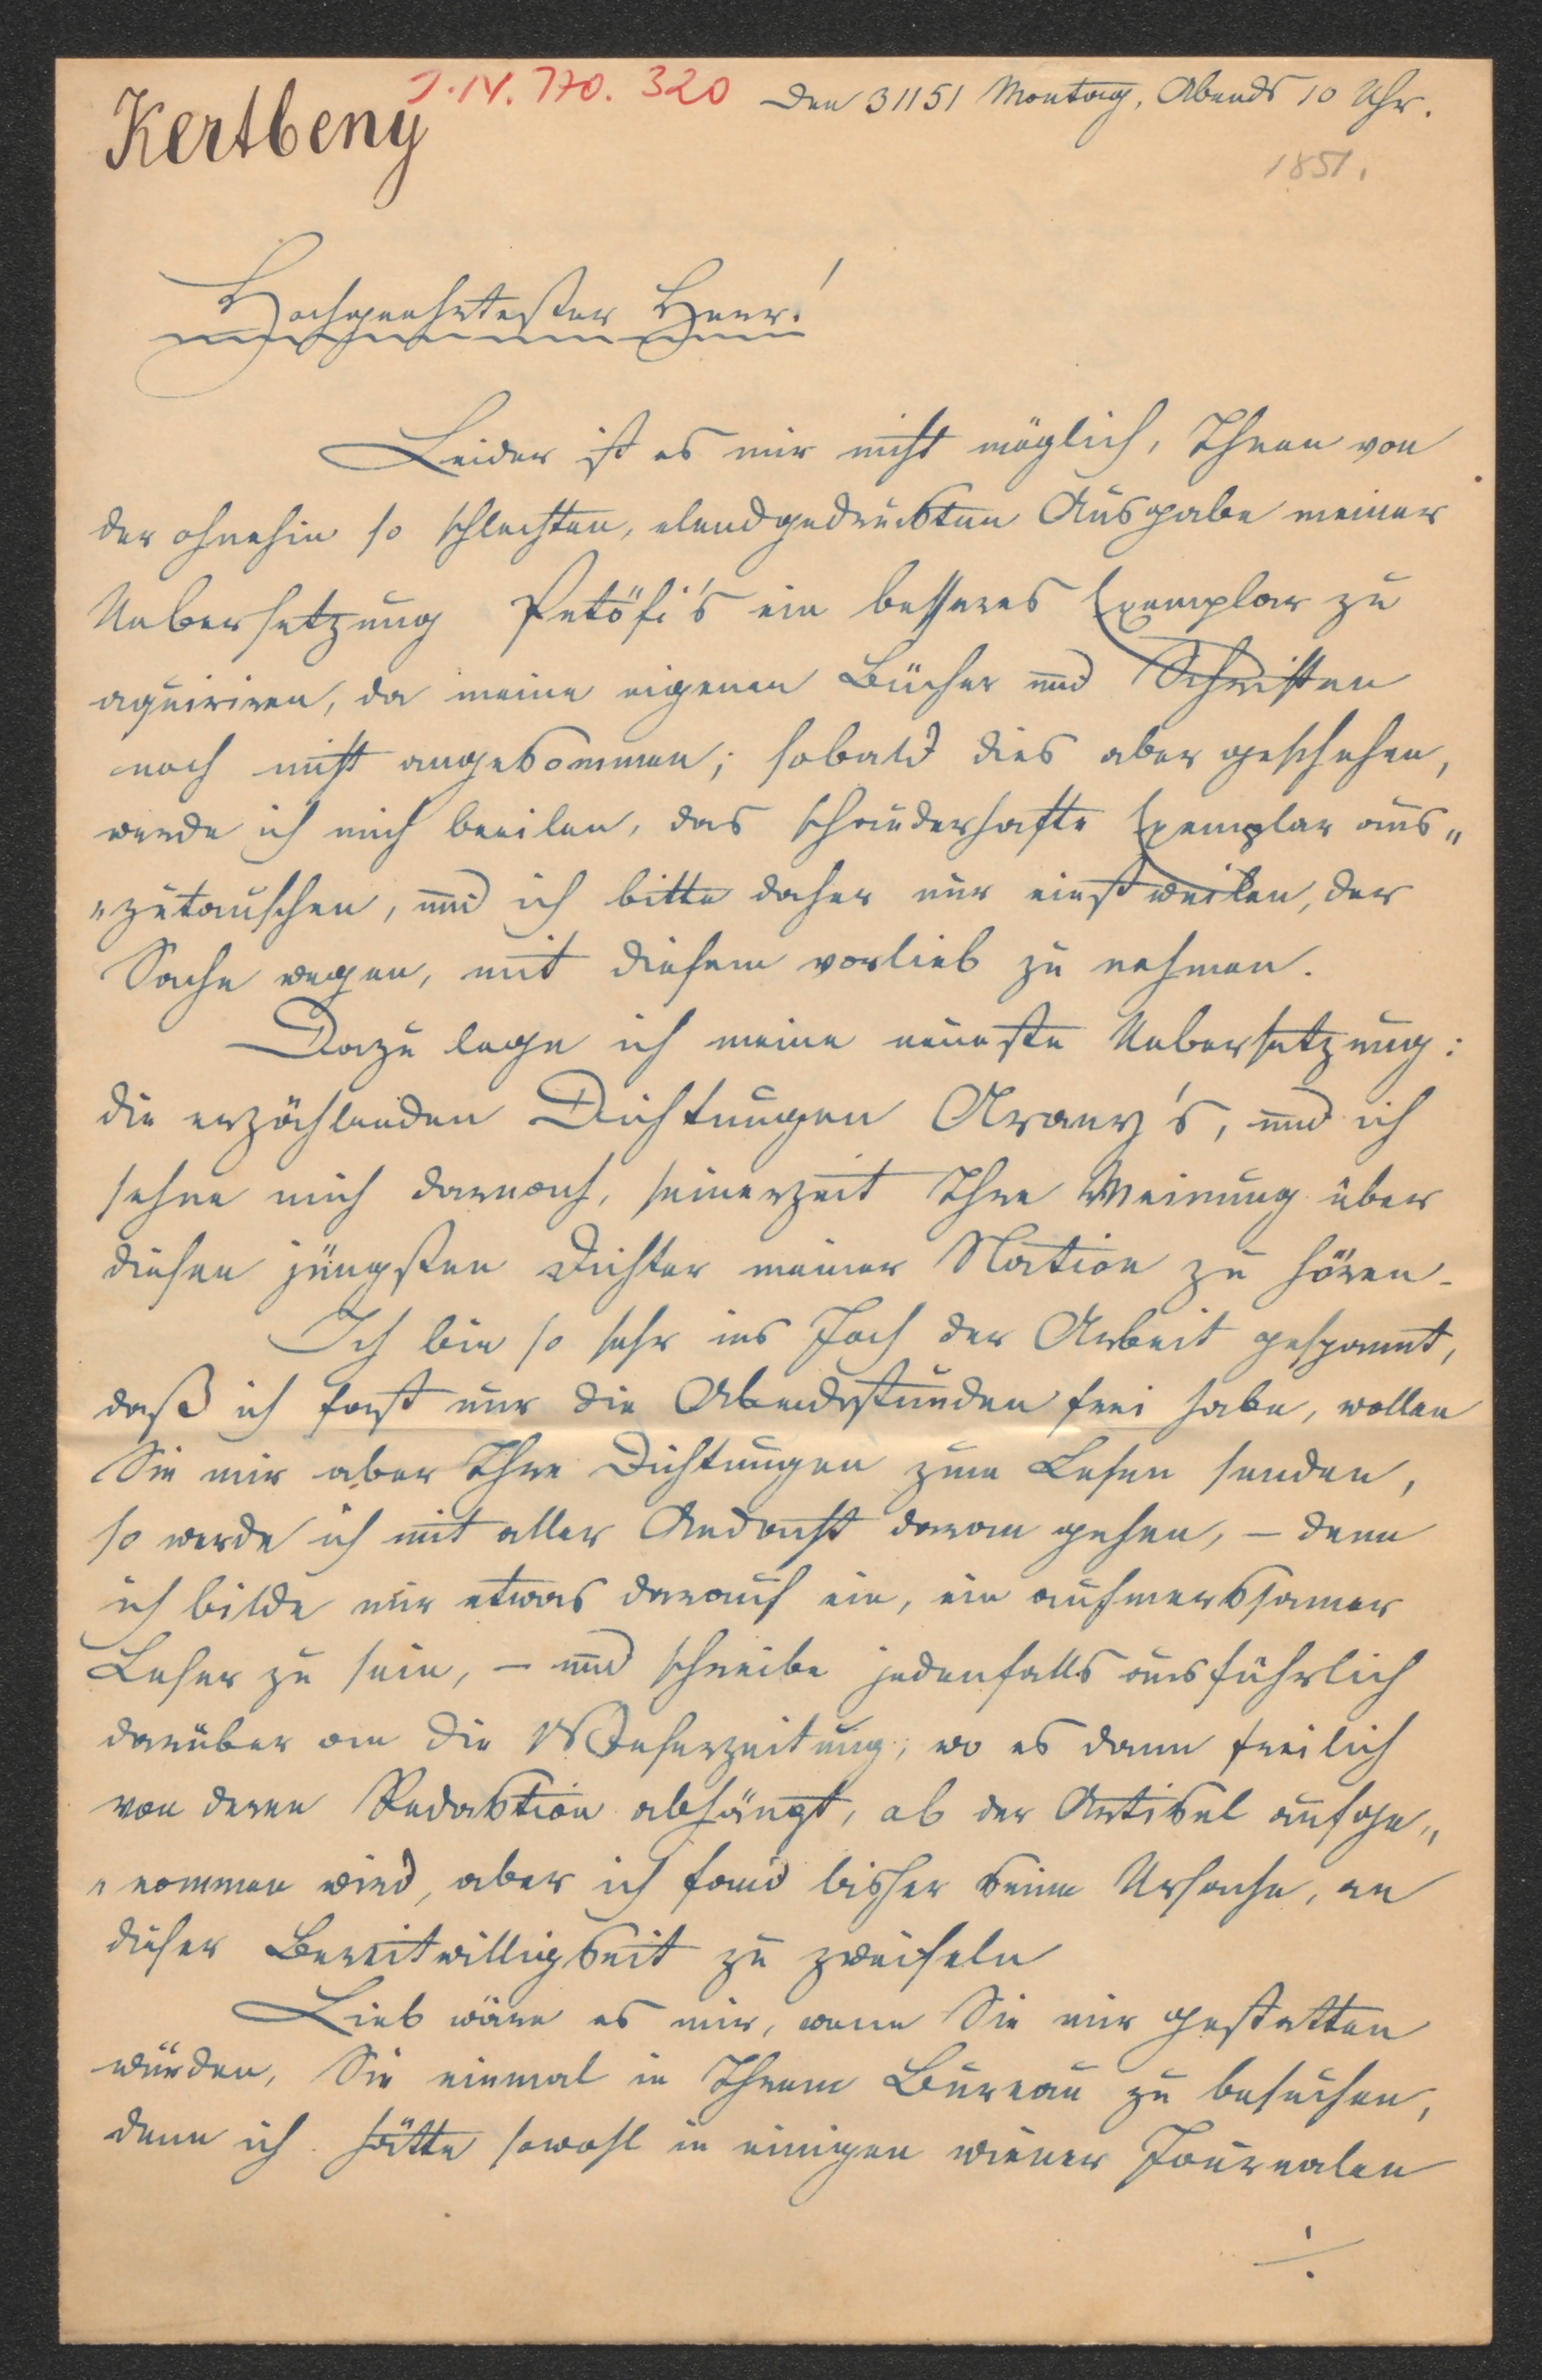 J. IV. 770. 320
Kertbeny
Den 31151 Montag, Abends 10 Uhr.
1851.
Hochgeehrtester Herr!
Leider ist es mir nicht möglich, Ihnen von
der ohnehin so schlechten, elendgedruckten Ausgabe meiner
Uebersetzung Petöfi's ein besseres Exemplar zu
aquiriren, da meine eigenen Bücher und Schriften
noch nicht angekommen; sobald dies aber geschehen,
werde ich mich beeilen, das schauderhafte Exemplar aus„
„zutauschen, und ich bitte daher nur einstweilen, der
Sache wegen, mit diesem vorlieb zu nehmen.
Dazu lege ich meine neueste Uebersetzung:
die erzählenden Dichtungen Arany's, und ich
sehne mich darnach, seinerzeit Ihre Meinung über
diesen jüngsten Dichter meiner Nation zu hören.
Ich bin so sehr ins Joch der Arbeit gespannt,
daß ich fast nur die Abendstunden frei habe, wollen
Sie mir aber Ihre Dichtungen zum Lesen senden,
so werde ich mit aller Andacht daran gehen, – denn
ich bilde mir etwas darauf ein, ein aufmerksamer
Leser zu sein, – und schreibe jedenfalls ausführlich
darüber an die Weserzeitung, wo es dann freilich
von deren Redaktion abhängt, ob der Artikel aufge„
„nommen wird, aber ich fand bisher keine Ursache, an
dieser Bereitwilligkeit zu zweifeln
Lieb wäre es mir, wenn Sie mir gestatten
würden, Sie einmal in Ihrem Bureau zu besuchen,
denn ich hätte sowohl in einigen wiener Journalen
./.